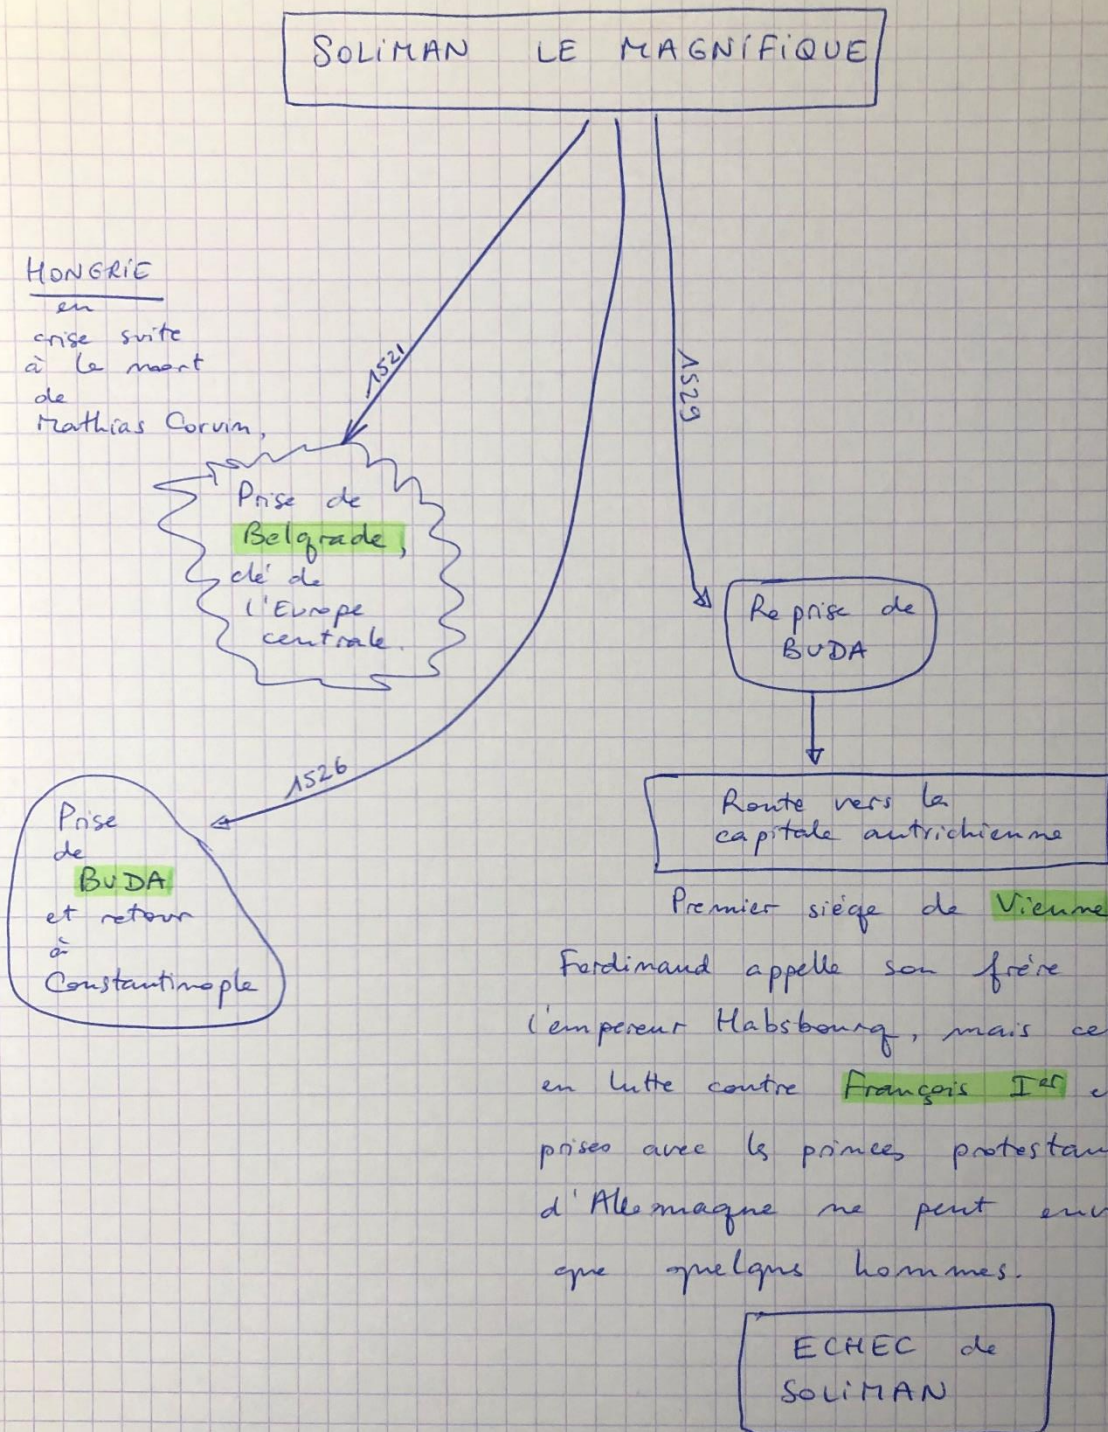 SOLIMAN LE MAGNIFIQUE
HONGRIE
en
crise suite
à la mort
de
Mathias Corvin,
1521
1529
Prise de
Belgrade,
clé de
l'Europe
centrale.
Reprise de
BUDA
1526
Prise
de
BUDA
et retour
à
Constantinople
Route vers la
capitale autrichienne
Premier siège de Vienne
Ferdinand appelle son frère
l'empereur Habsbourg, mais ce
en lutte contre François Ier e
prises avec les princes protestan
d'Allemagne ne peut env
que quelques hommes.
ECHEC de
SOLIMAN